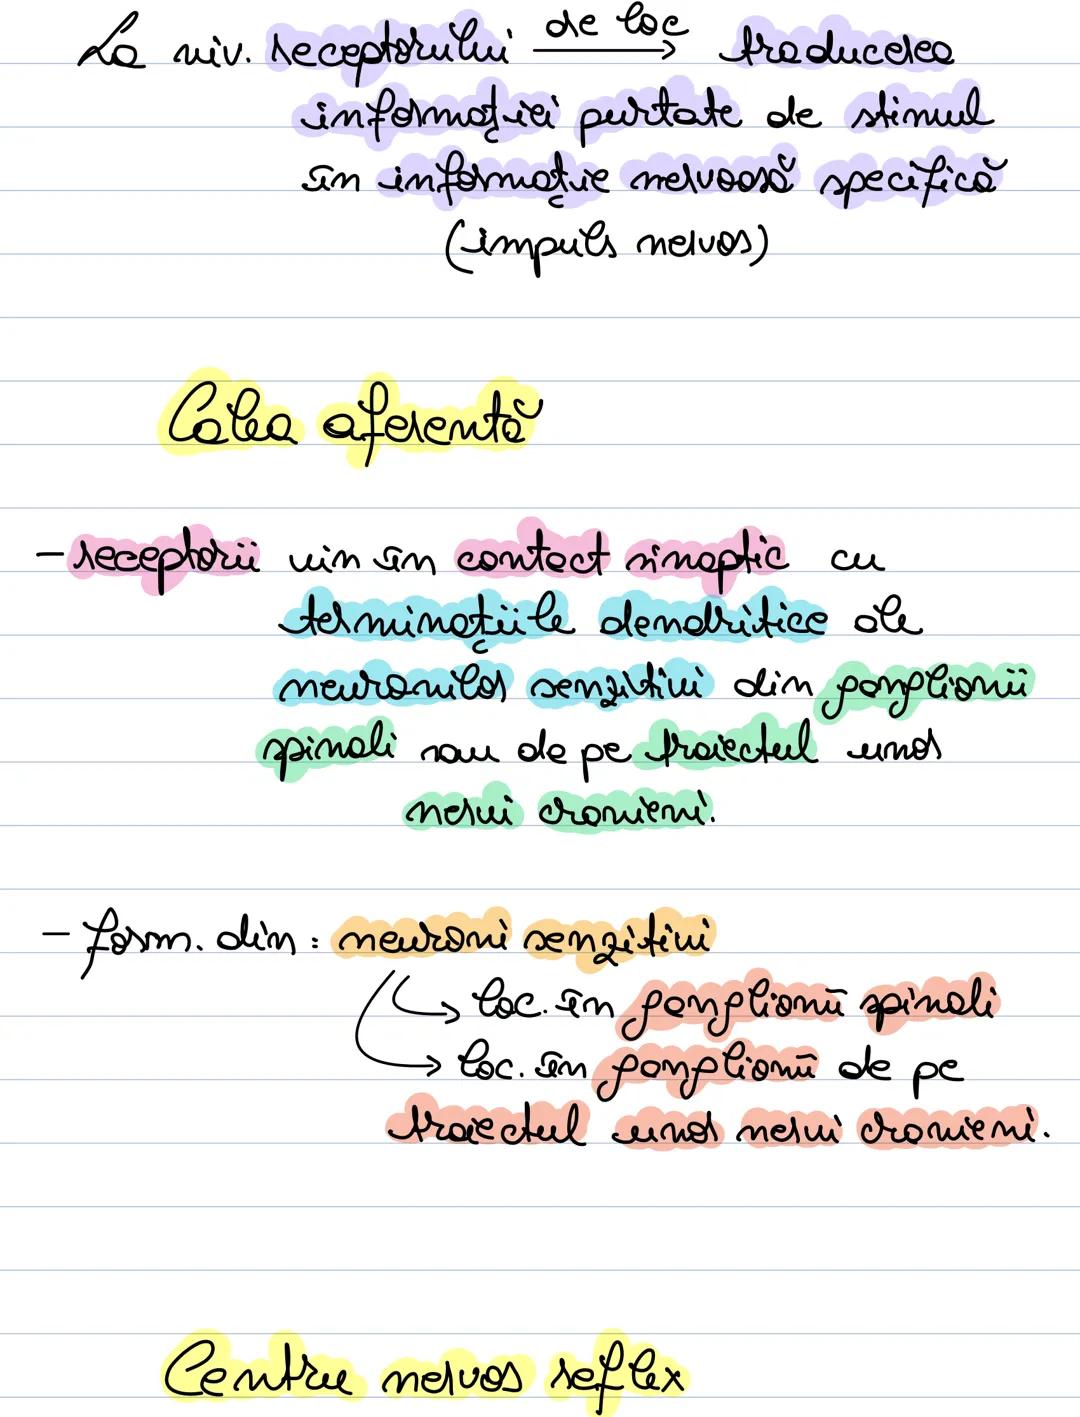 La niv. receptorului de loc → traducerea
informației purtate de stimul
în informație nervoasă specifică
(impuls nervos)
Calea aferentă
- receptorii vin în contact sinaptic cu
terminațiile dendritice ale
neuronilor senzitivi din ganglionii
spinali sau de pe traiectul unor
nervi cranieni.
- form. din: neuroni senzitivi
→ loc. în ganglionii spinali
→ loc. în ganglionii de pe
traiectul unor nervi cranieni.
Centru nervos reflex